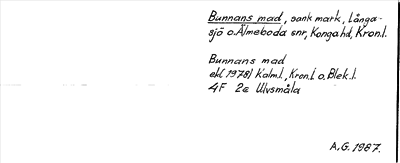 Bunnans mad, sank mark, Långa-
sjö o. Älmeboda snr, Konga hd, Kron.l.
Bunnans mad
ekl 1978/ Kalm.l., Kron.l. o. Blek.l.
4F 2e Ulvsmåla
A.G. 1987.